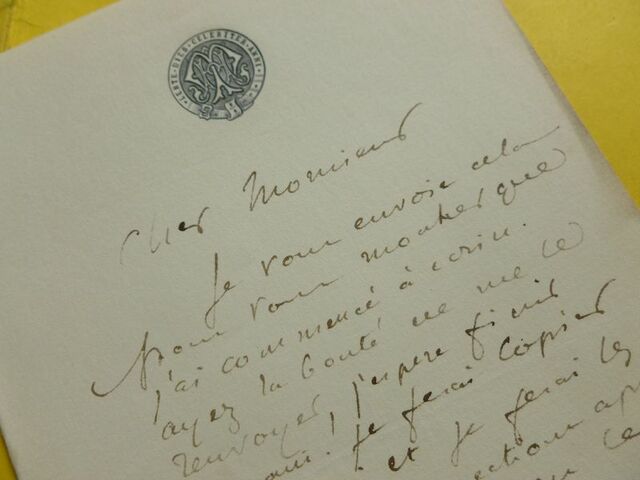 LENTE DIES CELERITER ANNI
Cher Monsieur
Je vous envoie cela
pour vous montrer que
j'ai commencé à écrire.
ayez la bonté de me le
renvoyer, j'espère finir
Je ferai copier
et je ferai les